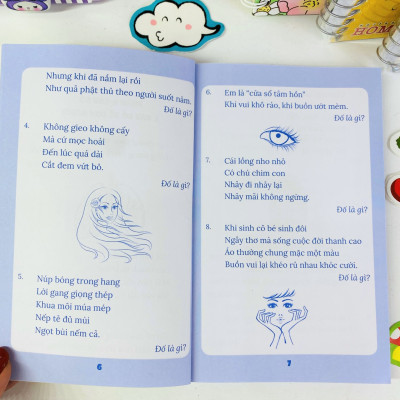 HOM
Nhưng khi đã nắm lại rồi
Như quả phật thủ theo người suốt năm.
Đố là gì?
4. Không gieo không cấy
Mà cứ mọc hoài
Đến lúc quá dài
Cắt đem vứt bỏ.
Đố là gì?
5. Núp bóng trong hang
Lời gang giọng thép
Khua môi múa mép
Nếp tẻ đủ mùi
Ngọt bùi nếm cả.
Đố là gì?
6
6. Em là "cửa sổ tâm hồn"
Khi vui khô ráo, khi buồn ướt mèm.
Đố là gì?
7. Cái lồng nho nhỏ
Có chú chim con
Nhảy đi nhảy lại
Nhảy mãi không ngừng.
Đố là gì?
8. Khi sinh cô bé sinh đôi
Ngây thơ mà sống cuộc đời thanh cao
Áo thường chung mặc một màu
Buồn vui lại khéo rủ nhau khóc cười.
Đố là gì?
7